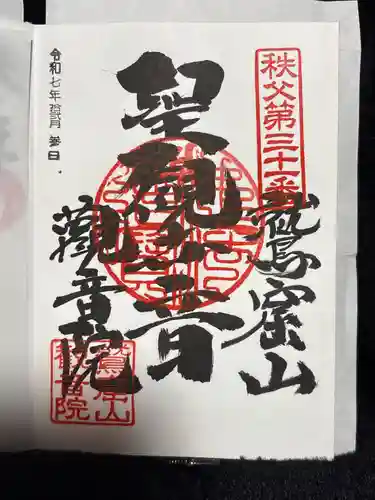 秩父第三十一番
鷲窟山
聖観世音
令和七年 拾弐月 参日
觀音院
鷲窟山
観音院